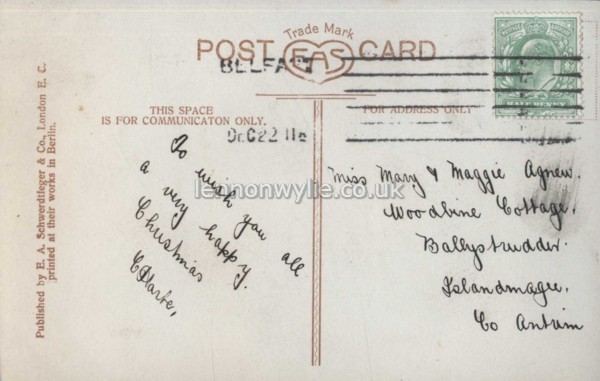 Trade Mark
POST CARD
EAS
BELFAST
HALF PENNY
THIS SPACE
IS FOR COMMUNICATON ONLY.
FOR ADDRESS ONLY
DEC 22 11
To wish you all
a very happy
Christmas
Miss Mary & Maggie Agnew.
Woodbine Cottage,
Ballystrudder.
Islandmagee,
Co Antrim
lennonwylie.co.uk
Published by E. A. Schwerdtfeger & Co., London E. C.
printed at their works in Berlin.